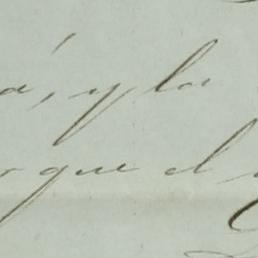 a, y la
rque el